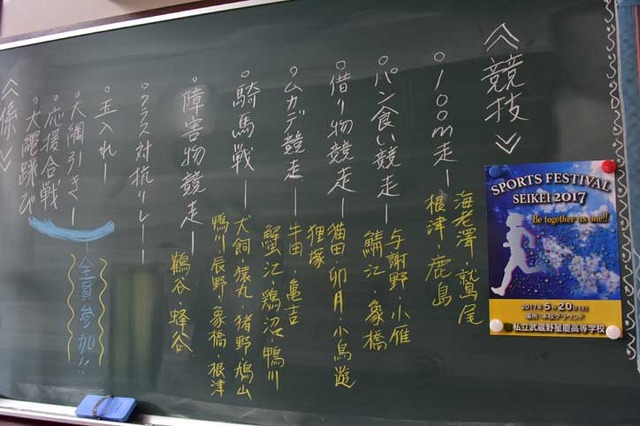 《競技》
○100m走ー海老澤・鷲尾
根津・鹿島
○パン食い競走ー与謝野・小雁
鯖江・象橋
○借り物競走ー猫田・卯月・小鳥遊
狸塚
○ムカデ競走ー牛田・亀吉
蟹江・鶏沼・鴨川
○騎馬戦ー犬飼・猿丸・猪野・鳩山
鴨川・辰野・象橋・根津
○障害物競走ー鶴谷・蜂谷
○クラス対抗リレーー
○玉入れー
○大綱引きー
○応援合戦
○大縄跳び
全員参加!!
《係》
SPORTS FESTIVAL
SEIKEI 2017
Be together as one!!
2017年5月20日(土)
場所:本校グラウンド
私立武蔵野星慶高等学校